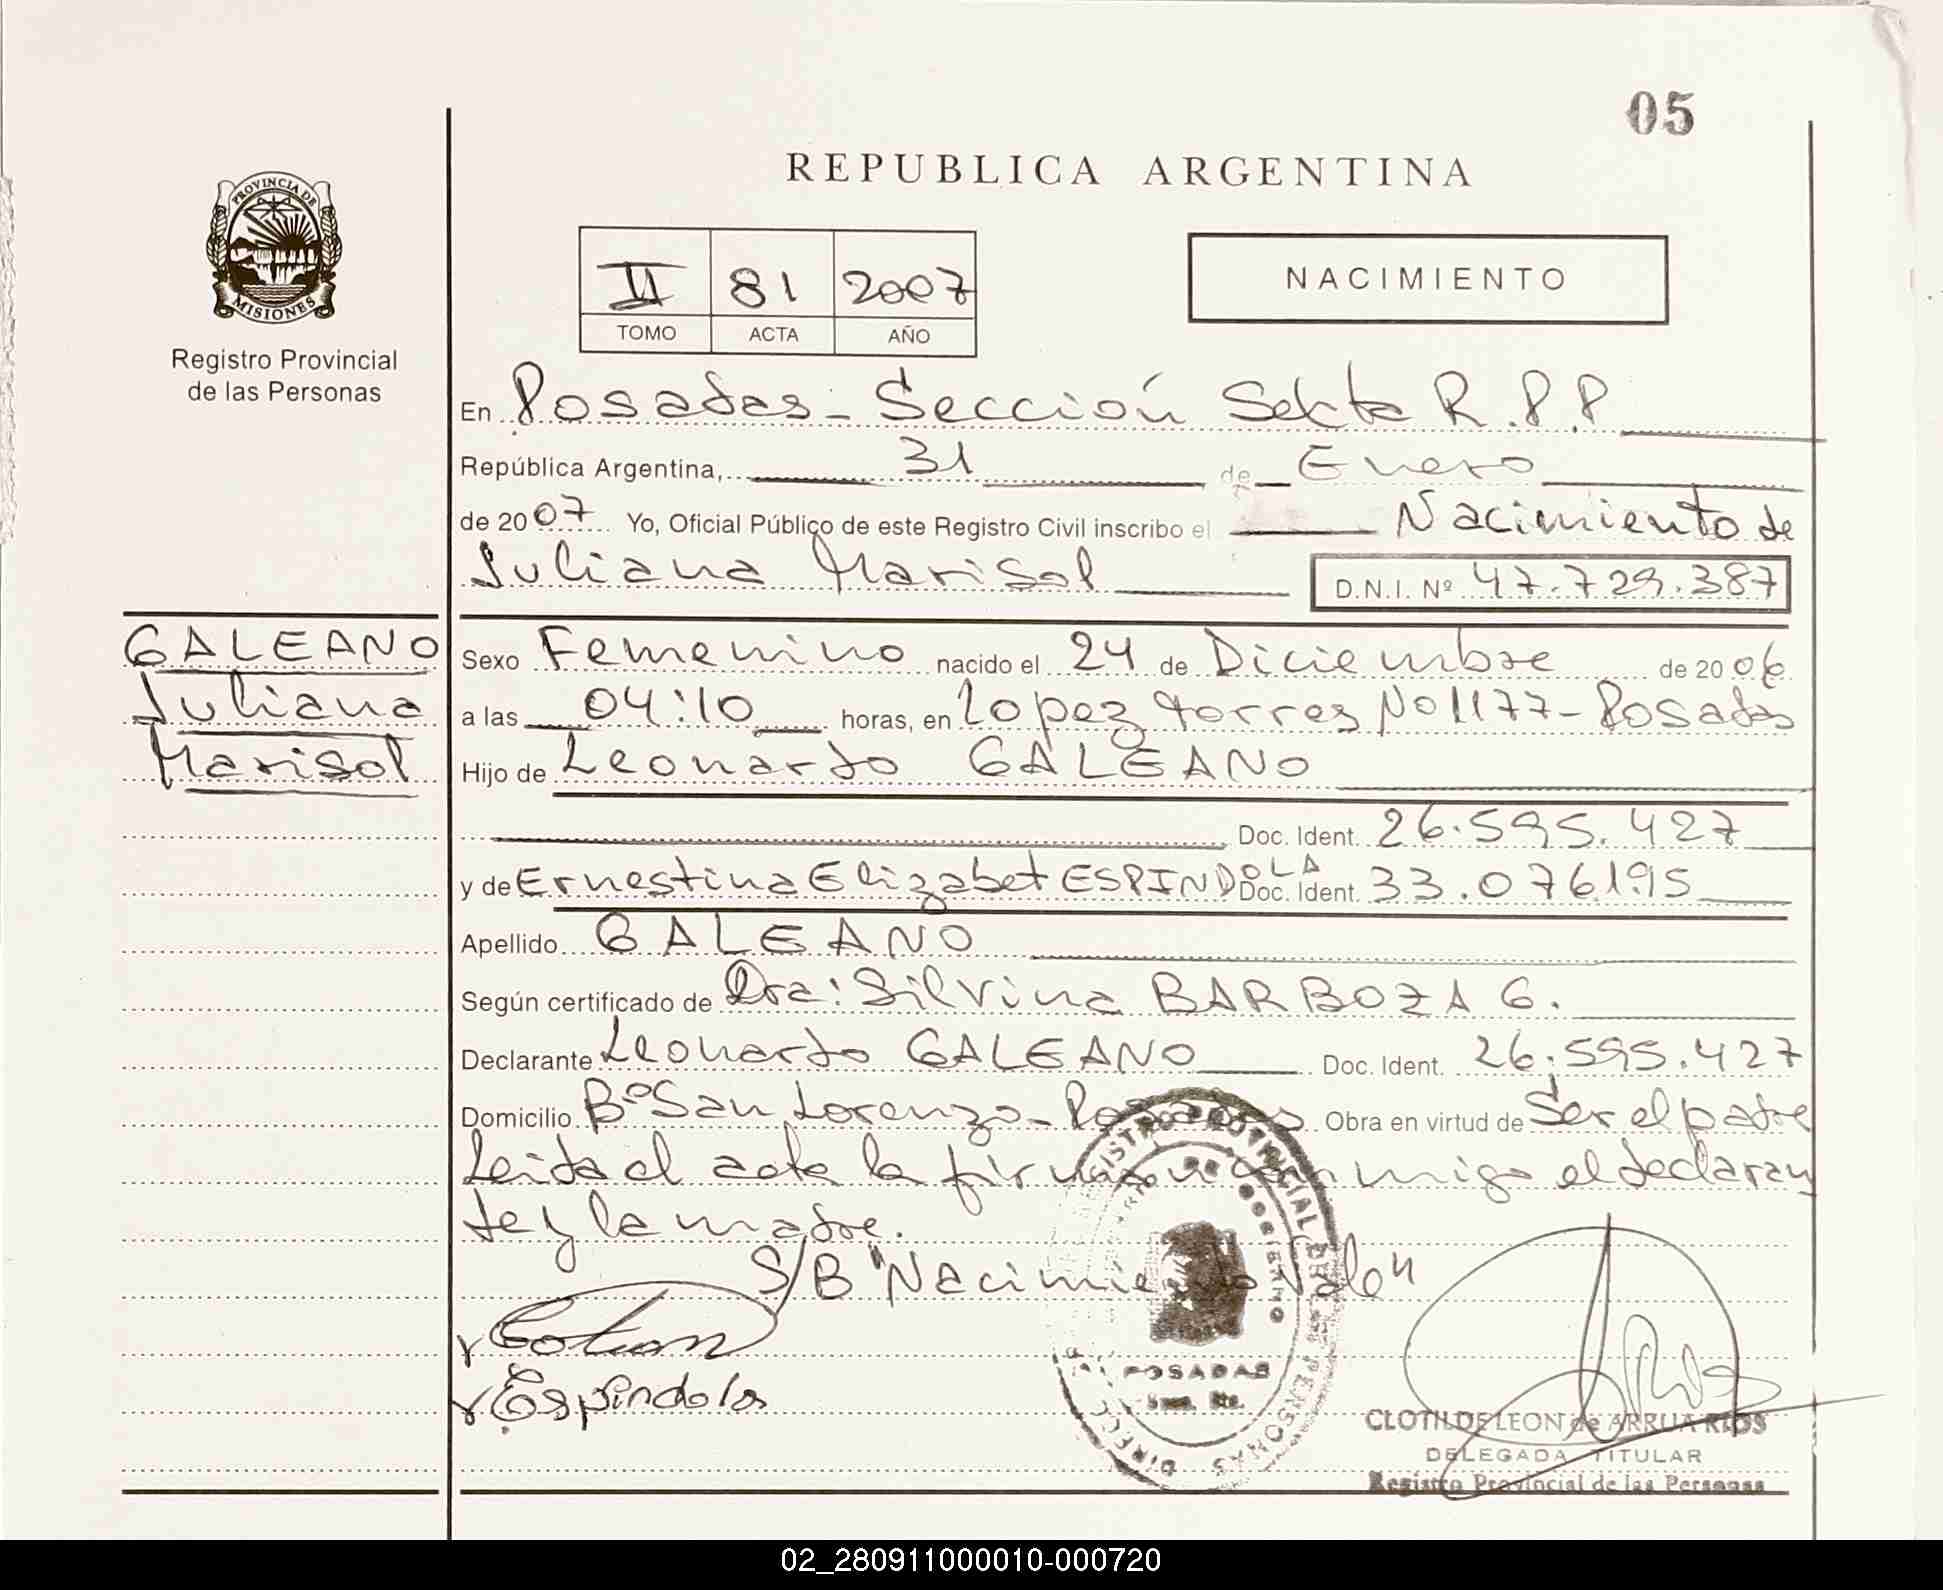 05
REPUBLICA ARGENTINA
PROVINCIA DE
MISIONES
Registro Provincial
de las Personas
II 81 2007
TOMO ACTA AÑO
NACIMIENTO
En Posadas - Sección Sexta R.P.P
República Argentina, 31 de Enero
de 2007 Yo, Oficial Público de este Registro Civil inscribo el Nacimiento de
Juliana Marisol D.N.I. Nº 47.729.387
GALEANO
Juliana
Marisol
Sexo Femenino nacido el 24 de Diciembre de 2006
a las 04:10 horas, en Lopez torres Nº 1177 - Posadas
Hijo de Leonardo GALEANO
Doc. Ident. 26.595.427
y de Ernestina Elizabet ESPINDOLA Doc. Ident. 33.076195
Apellido GALEANO
Según certificado de Dra: Silvina BARBOZA G.
Declarante Leonardo GALEANO Doc. Ident. 26.595.427
Domicilio Bº San Lorenzo - Posadas Obra en virtud de Ser el padre
Leida el acta la firman conmigo el declaran
te y la madre.
S/B "Nacimiento Vale"
Espindola
POSADAS
CLOTILDE LEON de ARRUA RIOS
DELEGADA TITULAR
Registro Provincial de las Personas
02_280911000010-000720